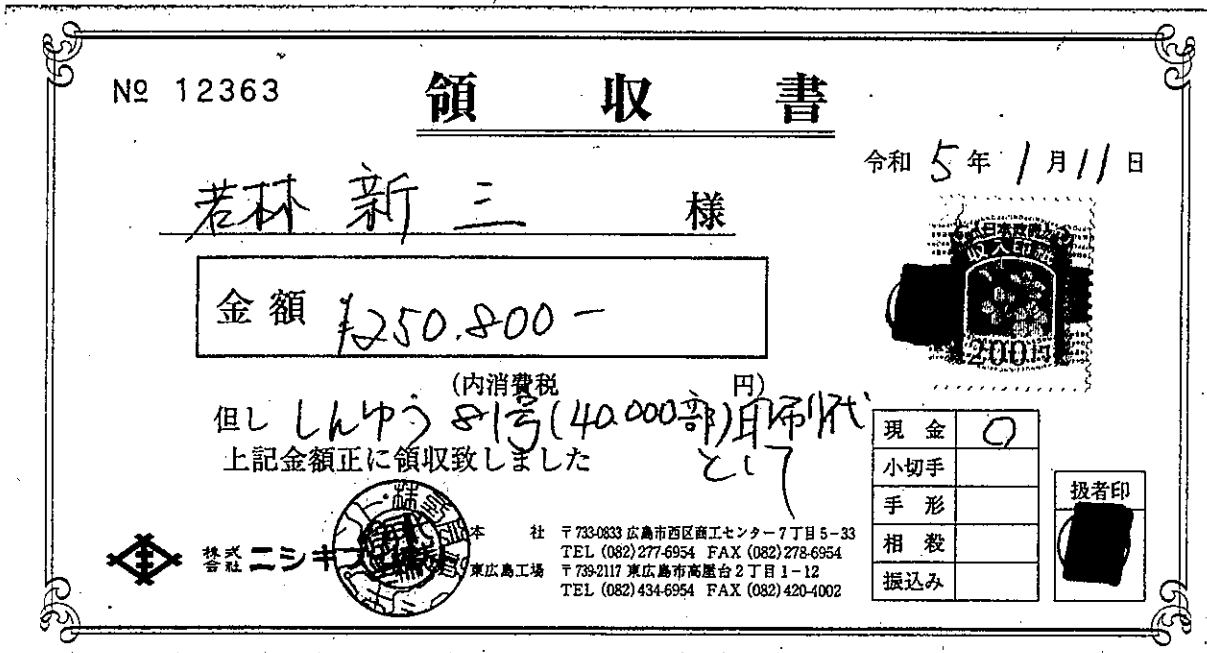 № 12363
領収書
令和 5 年 1 月 11 日
若林 新三 様
日本政府
収入印紙
200円
金額 ¥250.800-
(内消費税 円)
但し しんゆう 81号(40.000部)印刷代
上記金額正に領収致しました として
現金 〇
小切手
手形
相殺
振込み
扱者印
株式会社 ニシキ
本社 〒733-0833 広島市西区商工センター7丁目5-33
TEL (082)277-6954 FAX (082)278-6954
東広島工場 〒739-2117 東広島市高屋台2丁目1-12
TEL (082)434-6954 FAX (082)420-4002